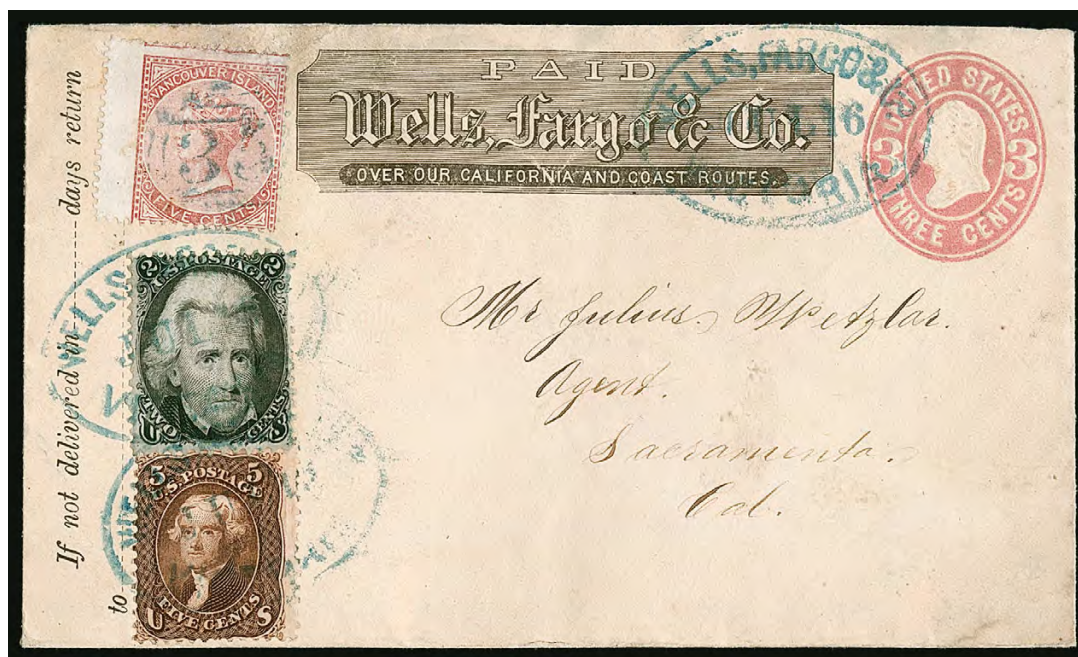 If not delivered in days return
to
VANCOUVER ISLAND
FIVE CENTS
35
PAID
Wells, Fargo & Co.
OVER OUR CALIFORNIA AND COAST ROUTES.
WELLS, FARGO &
16
VICTORIA
UNITED STATES
3 3
THREE CENTS
2 2
U.S. POSTAGE
TWO CENTS
U S
WELLS,
5 5
U.S. POSTAGE
FIVE CENTS
U S
Mr Julius Wetzlar.
Agent.
Sacramento.
Cal.